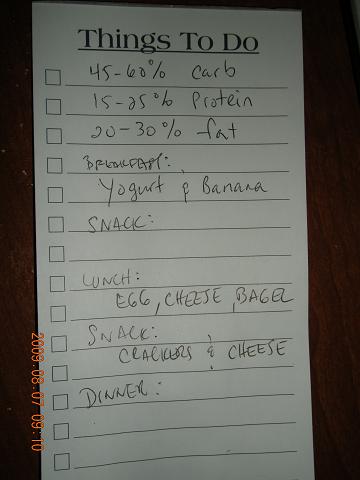 Things To Do
45-60% carb
15-25% Protein
20-30% fat
BREAKFAST:
Yogurt & Banana
SNACK:
LUNCH:
EGG, CHEESE, BAGEL
SNACK:
CRACKERS & CHEESE
DINNER:
2009.08.07 09:10